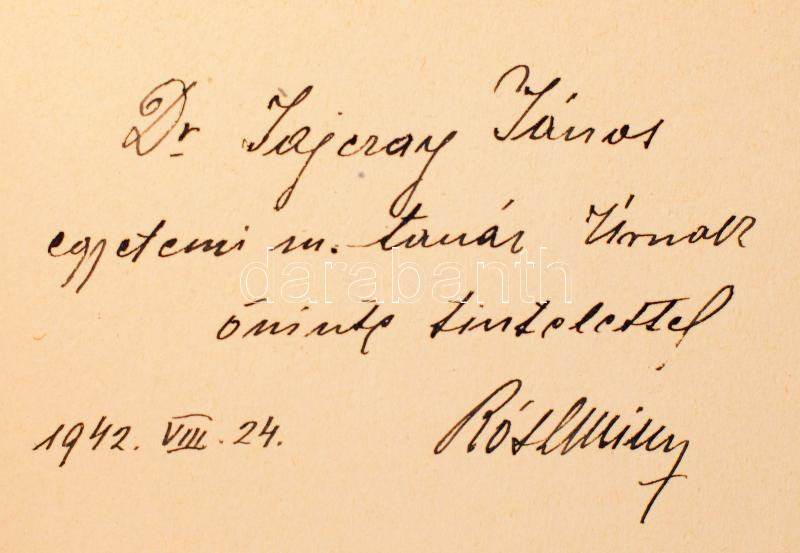 Dr Jajczay János
egyetemi m. tanár Úrnak
őszinte tisztelettel
1942. VIII. 24.
darabanth